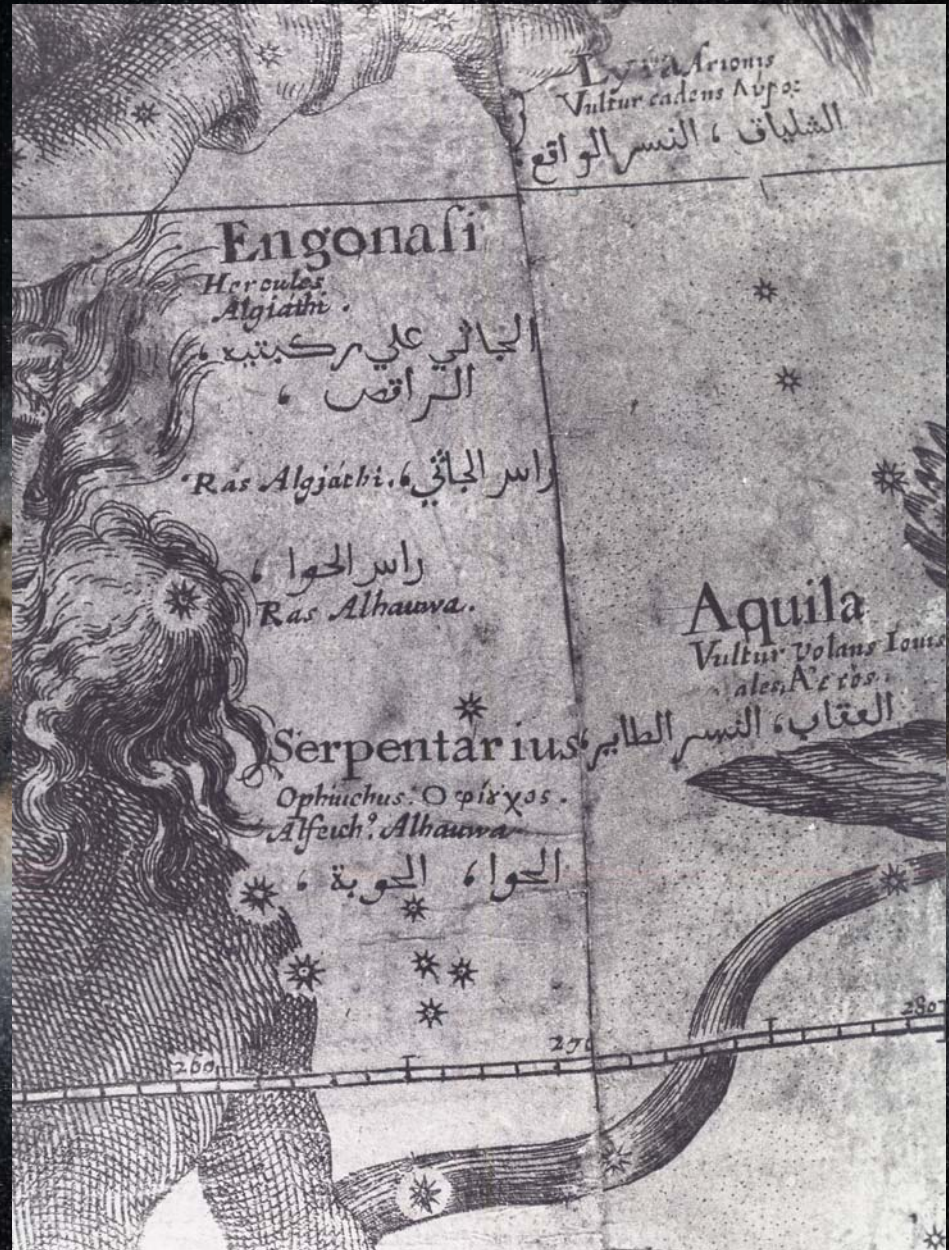 Lyra Arionis
Vultur cadens Λύρος
الشلياق ، النسر الواقع
Engonaſi
Hercules
Algiathi .
الجاثي علي ركبتيه ،
الراقص ،
Ras Algjáthi . راس الجاثي ،
راس الحوا ،
Ras Alhauwa.
Aquila
Vultur volans Iouis
ales,
العقاب ، النسر الطاير ،
Serpentarius
Ophiuchus. Οφίȣχος .
Alfeichº. Alhauwa
الحوا ، الحوية ،
260
280